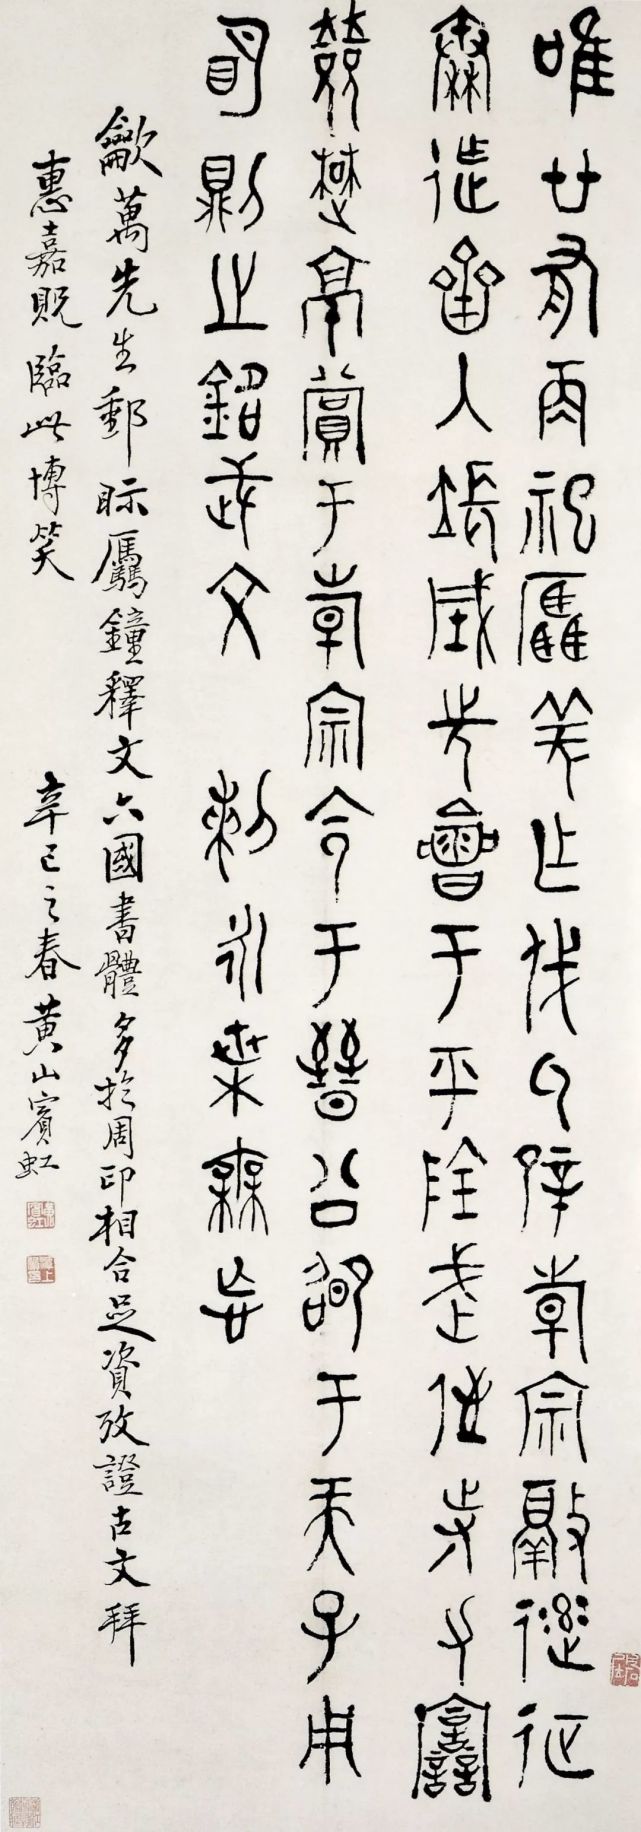 唯廿又再祀驫羌乍戎氒辟韓宗敲逨征
秦迮齊入長城先會于平陰武侄寺力讋
敓楚京賞于韓宗令于晉公卲于天子用
明則之銘武文 剌永枼毋忘
龡萬先生郵眎驫鐘釋文六國書體多於周印相合足資攷證古文拜
惠嘉貺臨此博笑 辛巳之春黃山賓虹